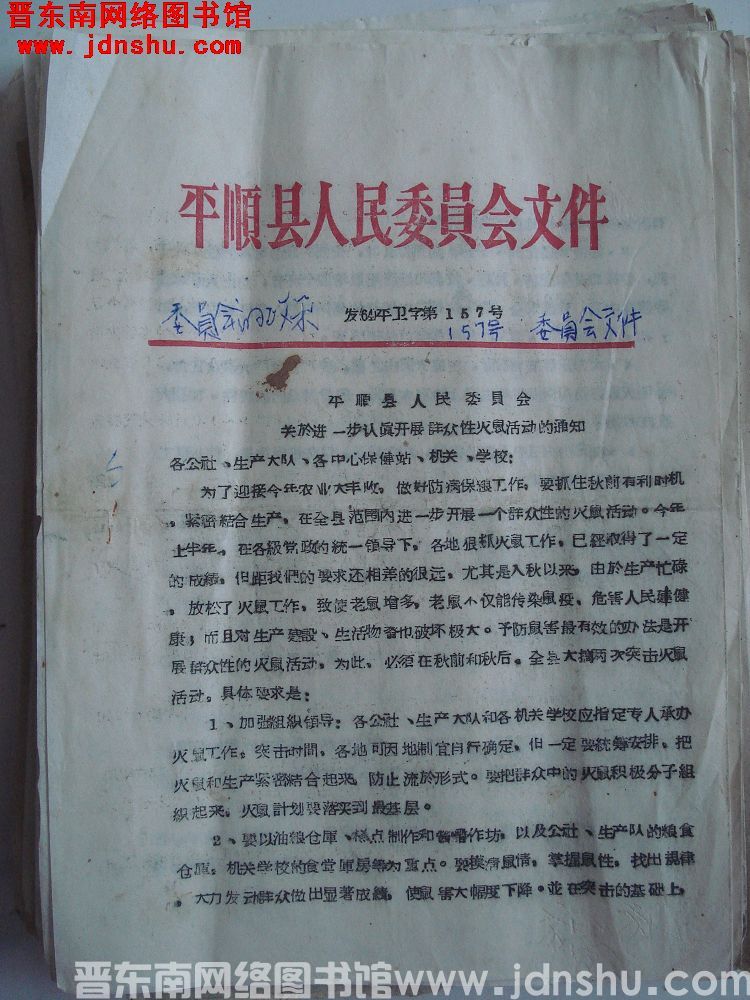 晋东南网络图书馆
www.jdnshu.com
平順县人民委員会文件
发(64)平卫字第157号
委員会
157号 委員会文件
平順县人民委員会
关於进一步认真开展群众性灭鼠活动的通知
各公社、生产大队、各中心保健站、机关、学校:
为了迎接今年农业大丰收,做好防病保粮工作,要抓住秋前有利时机
,紧密結合生产,在全县范围內进一步开展一个群众性的灭鼠活动。今年
上半年,在各級党政的統一領导下,各地狠抓灭鼠工作,已經取得了一定
的成績,但距我們的要求还相差的很远,尤其是入秋以来,由於生产忙碌
,放松了灭鼠工作,致使老鼠增多,老鼠不仅能传染鼠疫,危害人民健健
康,而且对生产建設、生活物資也破坏极大。予防鼠害最有效的办法是开
展群众性的灭鼠活动,为此,必須在秋前和秋后。全县大搞两次突击灭鼠
活动。具体要求是:
1、加强組織領导:各公社、生产大队和各机关学校应指定专人承办
灭鼠工作。突击时間,各地可因地制宜自行确定,但一定要統筹安排,把
灭鼠和生产紧密結合起来,防止流於形式。要把群众中的灭鼠积极分子組
織起来,灭鼠計划要落实到最基层。
2、要以油粮仓庫、糕点制作和酱醋作坊,以及公社、生产队的粮食
仓庫,机关学校的食堂庫房等为重点。要摸清鼠情,掌握鼠性,找出規律
,大力发动群众做出显著成績,使鼠害大幅度下降。並在突击的基础上,
晋东南网络图书馆www.jdnshu.com